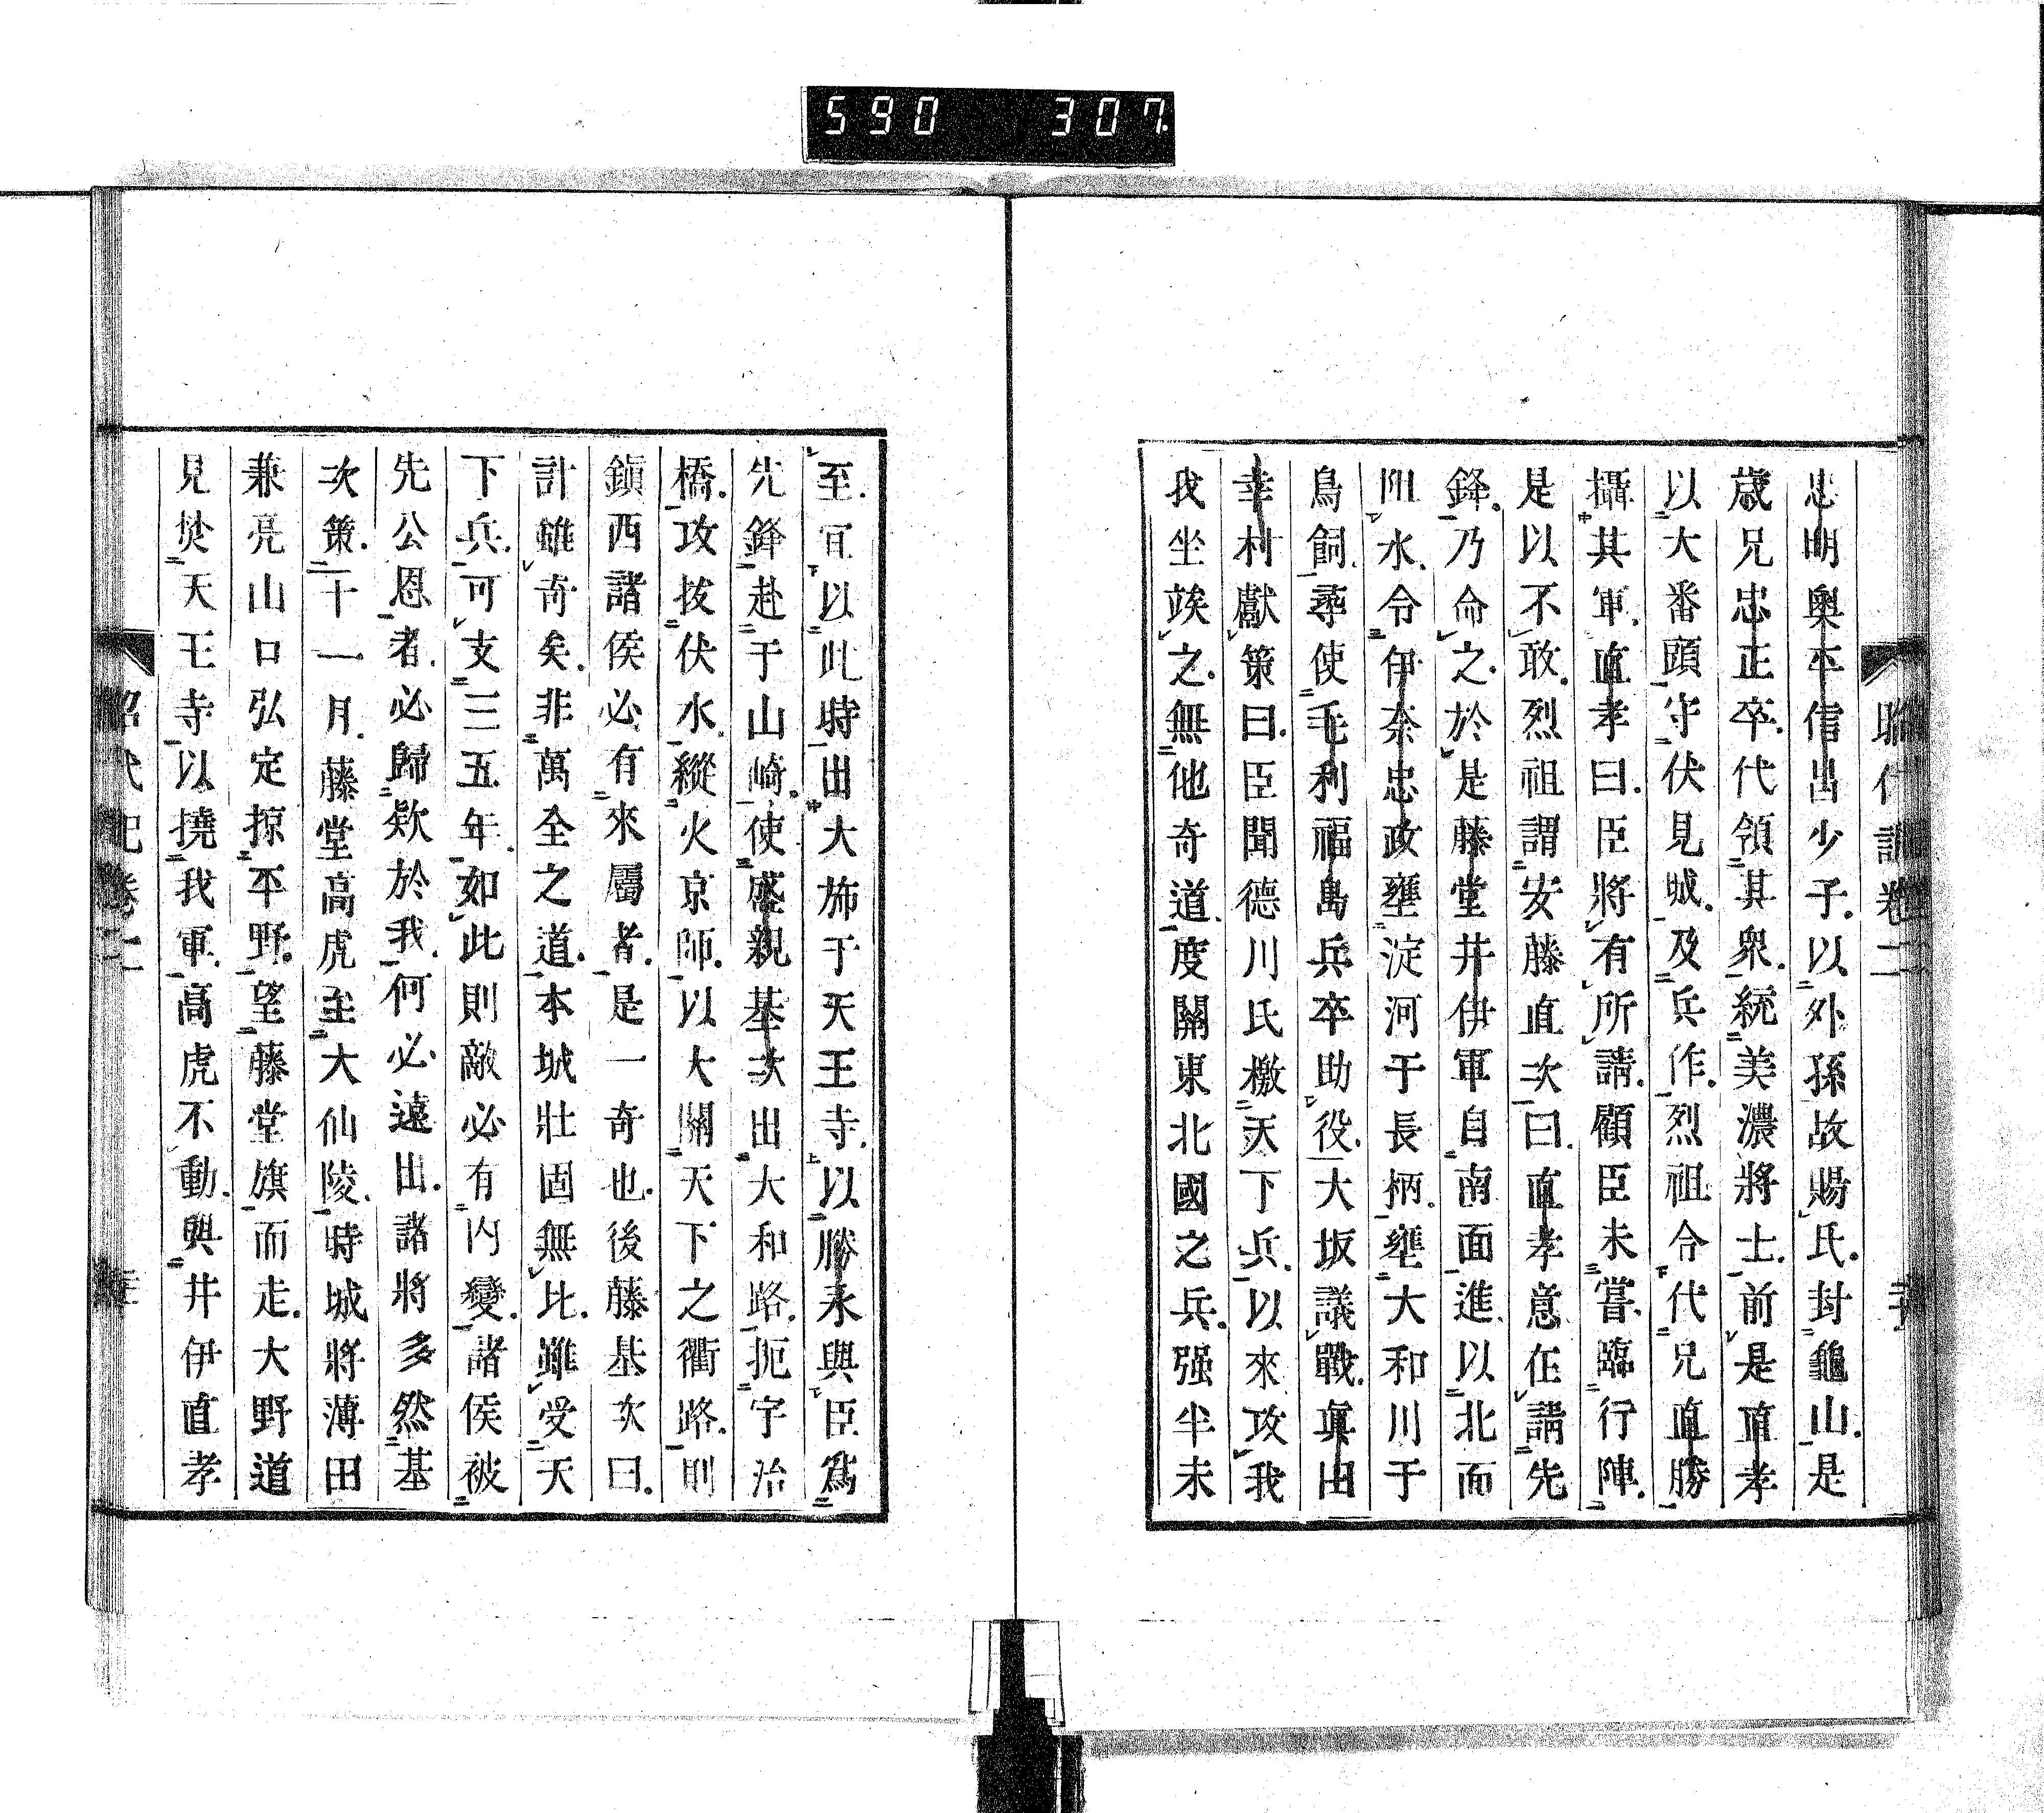 590 307
昭代記卷二
忠明奧平信昌少子以外孫故賜氏封龜山是
歲兄忠正卒代領其衆統美濃將士前是直孝
以大番頭守伏見城及兵作烈祖令代兄直勝
攝其軍直孝曰臣將有所請顧臣未嘗臨行陣
是以不敢烈祖謂安藤直次曰直孝意在請先
鋒乃命之於是藤堂井伊軍自南面進以北面
阻水令伊奈忠政壅淀河于長柄壅大和川于
鳥飼尋使毛利福島兵卒助役大坂議戰眞田
幸村獻策曰臣聞德川氏檄天下兵以來攻我
我坐竢之無他奇道度關東北國之兵强半未
至宜以此時出大斾于天王寺以勝永與臣爲
先鋒赴于山崎使盛親基次出大和路扼宇治
橋攻拔伏水縱火京師以大關天下之衢路則
鎭西諸侯必有來屬者是一奇也後藤基次曰
計雖奇矣非萬全之道本城壯固無比雖受天
下兵可支三五年如此則敵必有內變諸侯被
先公恩者必歸欵於我何必遠出諸將多然基
次策十一月藤堂高虎至大仙陵時城將薄田
兼亮山口弘定掠平野望藤堂旗而走大野道
見焚天王寺以撓我軍高虎不動與井伊直孝
昭代記卷二